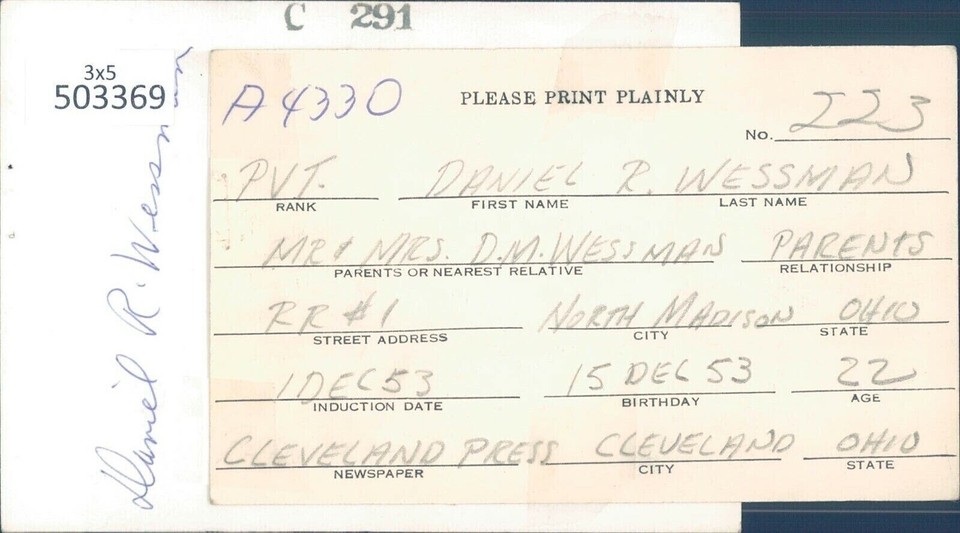 C 291
3x5
503369
Daniel R. Wessman
A4330
PLEASE PRINT PLAINLY
No. 223
PVT. DANIEL R. WESSMAN
RANK FIRST NAME LAST NAME
MR & MRS. D.M. WESSMAN PARENTS
PARENTS OR NEAREST RELATIVE RELATIONSHIP
RR #1 NORTH MADISON OHIO
STREET ADDRESS CITY STATE
1 DEC 53 15 DEC 53 22
INDUCTION DATE BIRTHDAY AGE
CLEVELAND PRESS CLEVELAND OHIO
NEWSPAPER CITY STATE